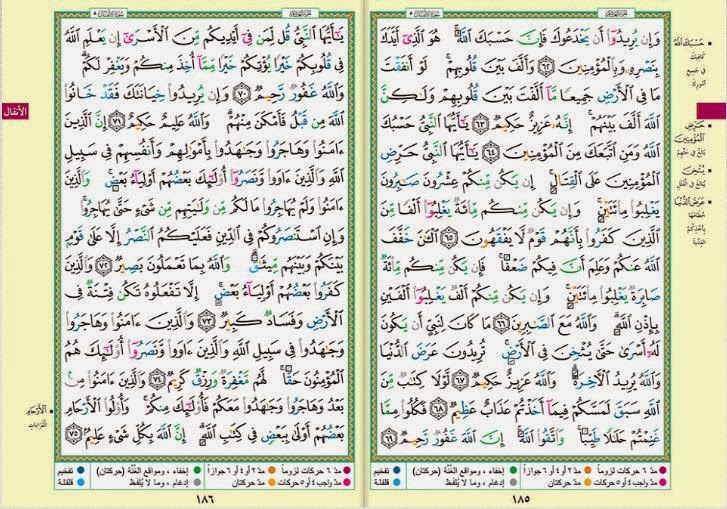 وَإِن يُرِيدُوٓا۟ أَن يَخْدَعُوكَ فَإِنَّ حَسْبَكَ ٱللَّهُ ۚ هُوَ ٱلَّذِىٓ أَيَّدَكَ
بِنَصْرِهِۦ وَبِٱلْمُؤْمِنِينَ ۝٦٢ وَأَلَّفَ بَيْنَ قُلُوبِهِمْ ۚ لَوْ أَنفَقْتَ
مَا فِى ٱلْأَرْضِ جَمِيعًا مَّآ أَلَّفْتَ بَيْنَ قُلُوبِهِمْ وَلَـٰكِنَّ
ٱللَّهَ أَلَّفَ بَيْنَهُمْ ۚ إِنَّهُۥ عَزِيزٌ حَكِيمٌ ۝٦٣ يَـٰٓأَيُّهَا ٱلنَّبِىُّ حَسْبُكَ
ٱللَّهُ وَمَنِ ٱتَّبَعَكَ مِنَ ٱلْمُؤْمِنِينَ ۝٦٤ يَـٰٓأَيُّهَا ٱلنَّبِىُّ حَرِّضِ
ٱلْمُؤْمِنِينَ عَلَى ٱلْقِتَالِ ۚ إِن يَكُن مِّنكُمْ عِشْرُونَ صَـٰبِرُونَ
يَغْلِبُوا۟ مِا۟ئَتَيْنِ ۚ وَإِن يَكُن مِّنكُم مِّا۟ئَةٌ يَغْلِبُوٓا۟ أَلْفًا مِّنَ
ٱلَّذِينَ كَفَرُوا۟ بِأَنَّهُمْ قَوْمٌ لَّا يَفْقَهُونَ ۝٦٥ ٱلْـَٔـٰنَ خَفَّفَ
ٱللَّهُ عَنكُمْ وَعَلِمَ أَنَّ فِيكُمْ ضَعْفًا ۚ فَإِن يَكُن مِّنكُم مِّا۟ئَةٌ
صَابِرَةٌ يَغْلِبُوا۟ مِا۟ئَتَيْنِ ۚ وَإِن يَكُن مِّنكُمْ أَلْفٌ يَغْلِبُوٓا۟ أَلْفَيْنِ
بِإِذْنِ ٱللَّهِ ۗ وَٱللَّهُ مَعَ ٱلصَّـٰبِرِينَ ۝٦٦ مَا كَانَ لِنَبِىٍّ أَن يَكُونَ
لَهُۥٓ أَسْرَىٰ حَتَّىٰ يُثْخِنَ فِى ٱلْأَرْضِ ۚ تُرِيدُونَ عَرَضَ ٱلدُّنْيَا
وَٱللَّهُ يُرِيدُ ٱلْـَٔاخِرَةَ ۗ وَٱللَّهُ عَزِيزٌ حَكِيمٌ ۝٦٧ لَّوْلَا كِتَـٰبٌ مِّنَ
ٱللَّهِ سَبَقَ لَمَسَّكُمْ فِيمَآ أَخَذْتُمْ عَذَابٌ عَظِيمٌ ۝٦٨ فَكُلُوا۟ مِمَّا
غَنِمْتُمْ حَلَـٰلًا طَيِّبًا ۚ وَٱتَّقُوا۟ ٱللَّهَ ۚ إِنَّ ٱللَّهَ غَفُورٌ رَّحِيمٌ ۝٦٩
حَسْبَكَ اللَّهُ
كافيك
في جميع
أمورك
حَرِّضِ
الْمُؤْمِنِينَ
بالغ في حثهم
يُثْخِنَ
يبالغ في القتل
عَرَضَ الدُّنْيَا
حطامها
بأخذكم
الفدية
مدّ ٦ حركات لزوماً
مدّ ٢ أو ٤ أو ٦ جوازاً
إخفاء ، ومواقع الغُنَّة (حركتان)
تفخيم
مدّ واجب ٤ أو ٥ حركات
مدّ حركتان
إدغام ، وما لا يُلفَظ
قلقلة
١٨٥
يَـٰٓأَيُّهَا ٱلنَّبِىُّ قُل لِّمَن فِىٓ أَيْدِيكُم مِّنَ ٱلْأَسْرَىٰٓ إِن يَعْلَمِ ٱللَّهُ
فِى قُلُوبِكُمْ خَيْرًا يُؤْتِكُمْ خَيْرًا مِّمَّآ أُخِذَ مِنكُمْ وَيَغْفِرْ لَكُمْ ۗ
وَٱللَّهُ غَفُورٌ رَّحِيمٌ ۝٧٠ وَإِن يُرِيدُوا۟ خِيَانَتَكَ فَقَدْ خَانُوا۟
ٱللَّهَ مِن قَبْلُ فَأَمْكَنَ مِنْهُمْ ۗ وَٱللَّهُ عَلِيمٌ حَكِيمٌ ۝٧١ إِنَّ ٱلَّذِينَ
ءَامَنُوا۟ وَهَاجَرُوا۟ وَجَـٰهَدُوا۟ بِأَمْوَٰلِهِمْ وَأَنفُسِهِمْ فِى سَبِيلِ
ٱللَّهِ وَٱلَّذِينَ ءَاوَوا۟ وَّنَصَرُوٓا۟ أُو۟لَـٰٓئِكَ بَعْضُهُمْ أَوْلِيَآءُ بَعْضٍ ۚ وَٱلَّذِينَ
ءَامَنُوا۟ وَلَمْ يُهَاجِرُوا۟ مَا لَكُم مِّن وَلَـٰيَتِهِم مِّن شَىْءٍ حَتَّىٰ يُهَاجِرُوا۟ ۚ
وَإِنِ ٱسْتَنصَرُوكُمْ فِى ٱلدِّينِ فَعَلَيْكُمُ ٱلنَّصْرُ إِلَّا عَلَىٰ قَوْمٍۭ
بَيْنَكُمْ وَبَيْنَهُم مِّيثَـٰقٌ ۗ وَٱللَّهُ بِمَا تَعْمَلُونَ بَصِيرٌ ۝٧٢ وَٱلَّذِينَ
كَفَرُوا۟ بَعْضُهُمْ أَوْلِيَآءُ بَعْضٍ ۚ إِلَّا تَفْعَلُوهُ تَكُن فِتْنَةٌ فِى
ٱلْأَرْضِ وَفَسَادٌ كَبِيرٌ ۝٧٣ وَٱلَّذِينَ ءَامَنُوا۟ وَهَاجَرُوا۟
وَجَـٰهَدُوا۟ فِى سَبِيلِ ٱللَّهِ وَٱلَّذِينَ ءَاوَوا۟ وَّنَصَرُوٓا۟ أُو۟لَـٰٓئِكَ هُمُ
ٱلْمُؤْمِنُونَ حَقًّا ۚ لَّهُم مَّغْفِرَةٌ وَرِزْقٌ كَرِيمٌ ۝٧٤ وَٱلَّذِينَ ءَامَنُوا۟ مِنۢ
بَعْدُ وَهَاجَرُوا۟ وَجَـٰهَدُوا۟ مَعَكُمْ فَأُو۟لَـٰٓئِكَ مِنكُمْ ۚ وَأُو۟لُوا۟ ٱلْأَرْحَامِ
بَعْضُهُمْ أَوْلَىٰ بِبَعْضٍ فِى كِتَـٰبِ ٱللَّهِ ۗ إِنَّ ٱللَّهَ بِكُلِّ شَىْءٍ عَلِيمٌۢ ۝٧٥
الأنفال
الْأَرْحَامِ
القرابات
مدّ ٦ حركات لزوماً
مدّ ٢ أو ٤ أو ٦ جوازاً
إخفاء ، ومواقع الغُنَّة (حركتان)
تفخيم
مدّ واجب ٤ أو ٥ حركات
مدّ حركتان
إدغام ، وما لا يُلفَظ
قلقلة
١٨٦